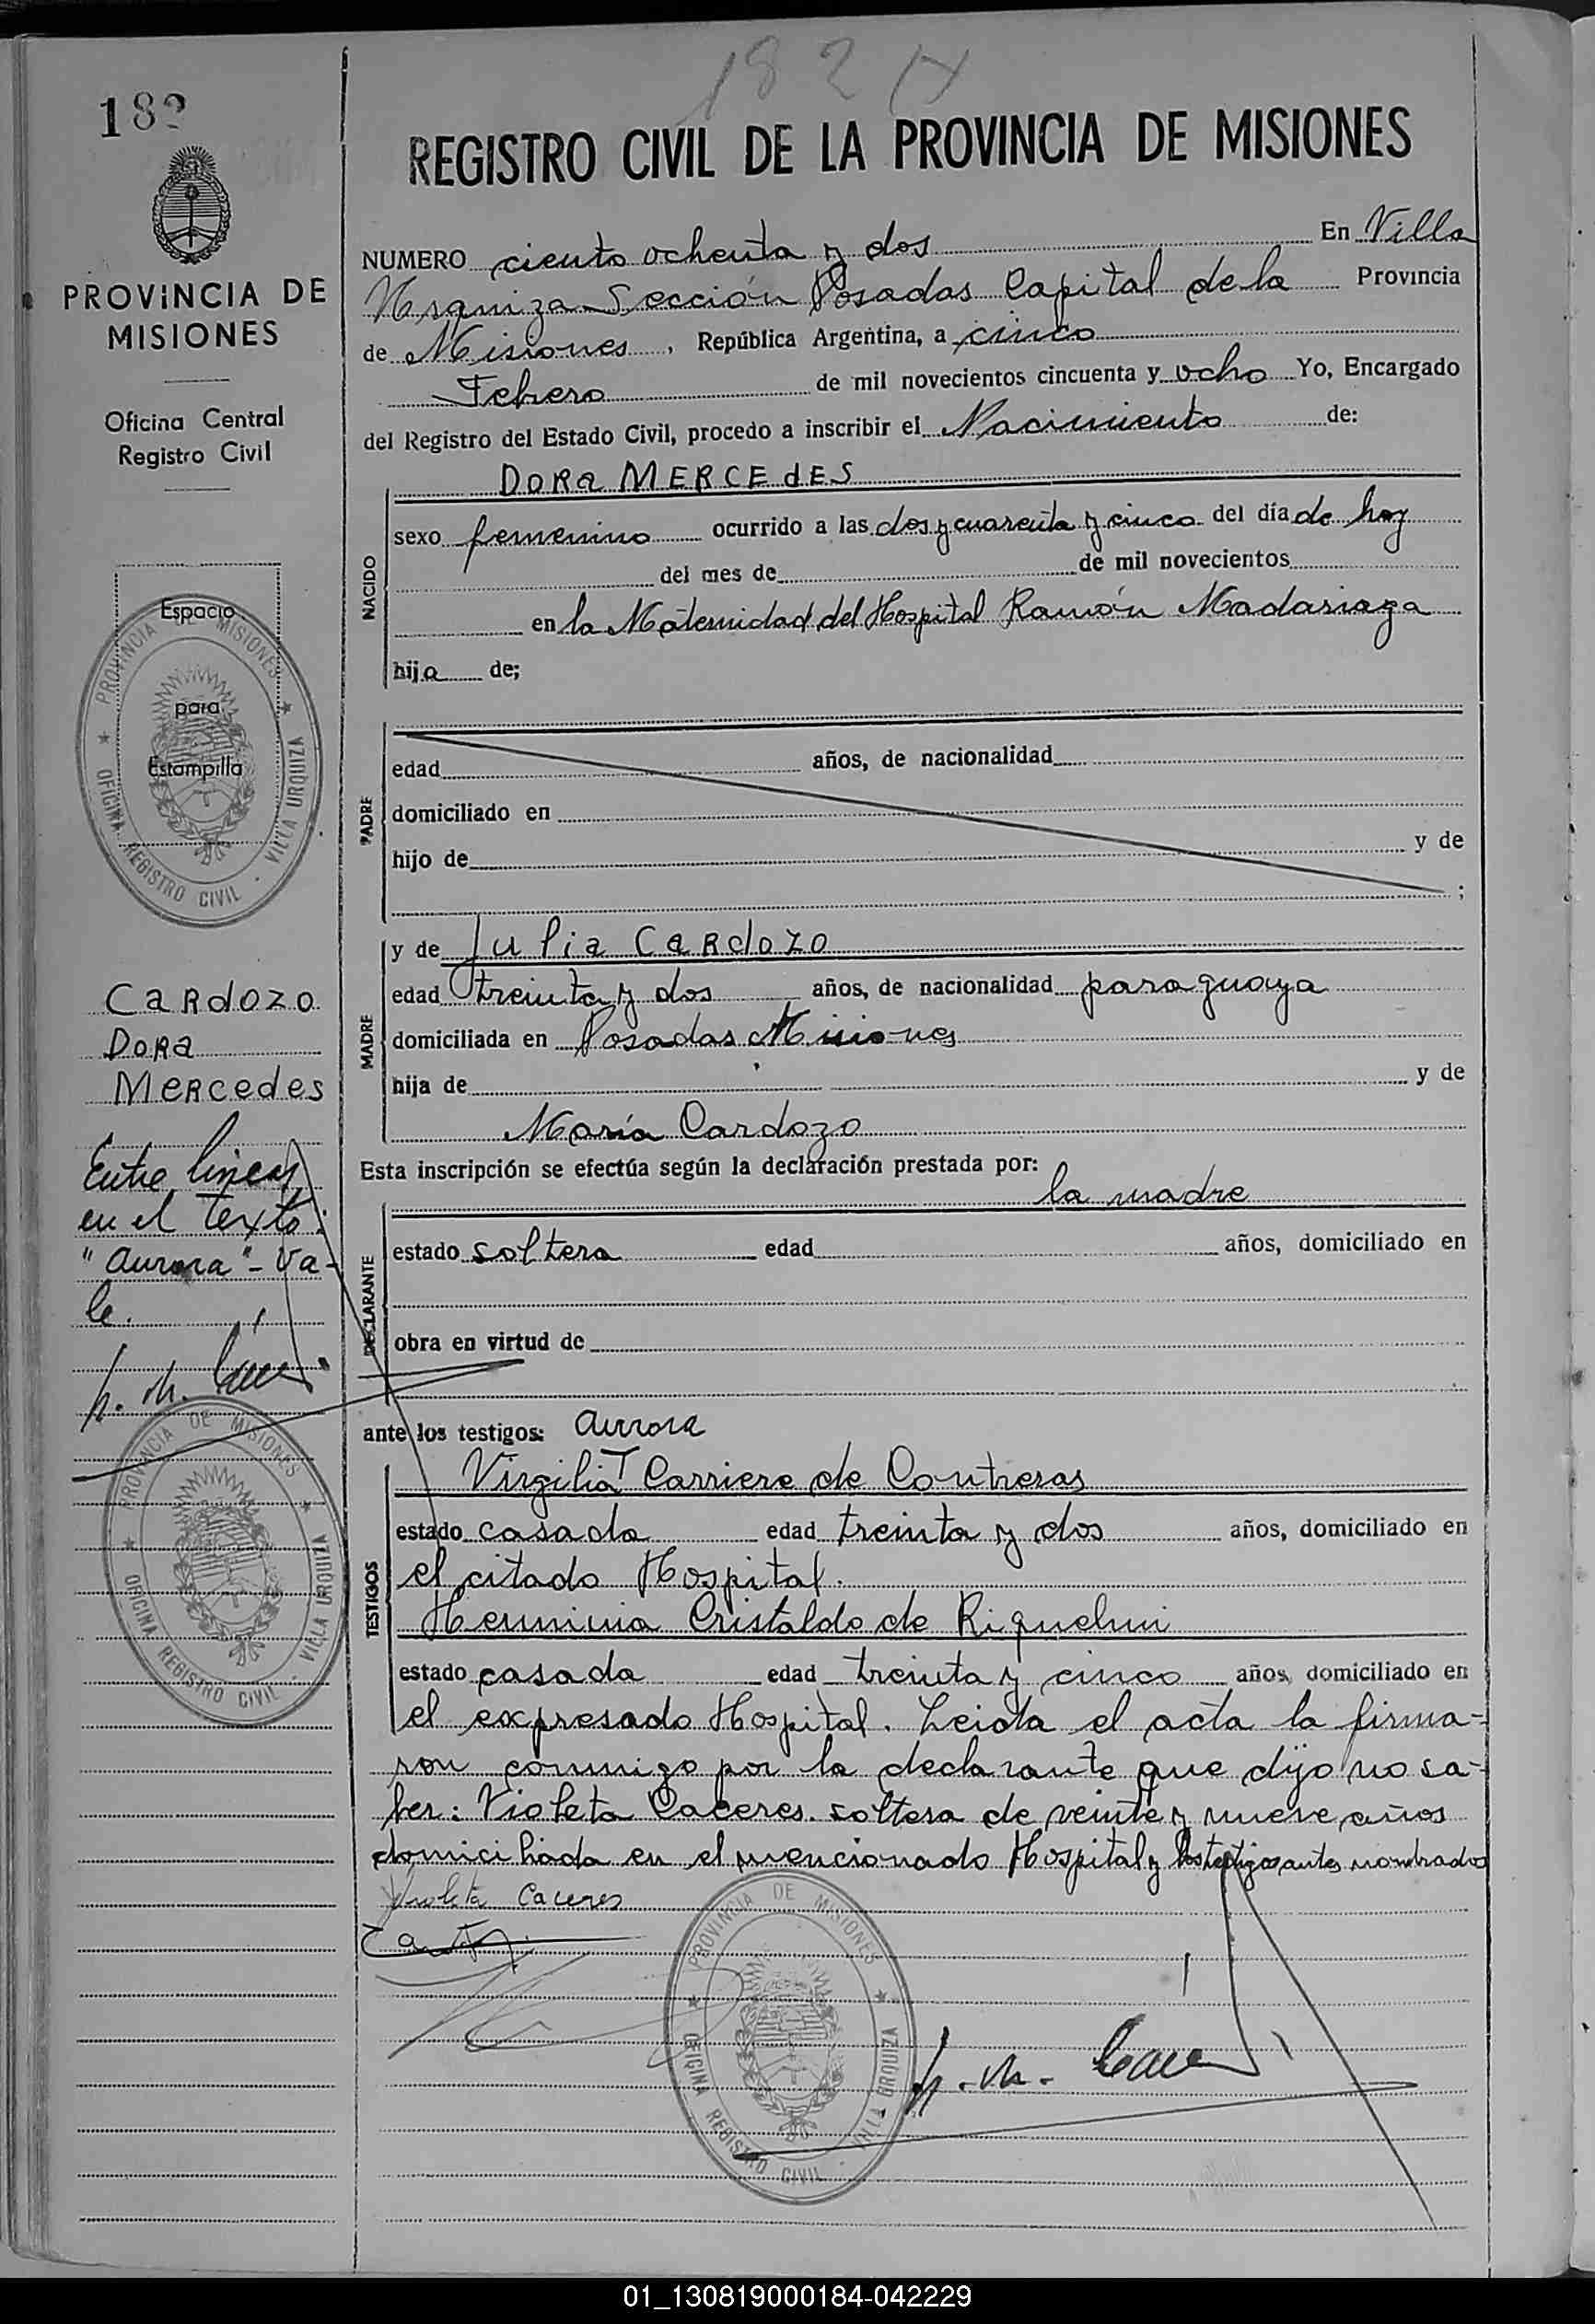 182
182
PROVINCIA DE
MISIONES
Oficina Central
Registro Civil
Espacio
para
Estampilla
PROVINCIA DE MISIONES
OFICINA REGISTRO CIVIL - VILLA URQUIZA
Cardozo
Dora
Mercedes
Entre lineas
en el texto:
"Aurora" - Va-
le.
PROVINCIA DE MISIONES
OFICINA REGISTRO CIVIL - VILLA URQUIZA
REGISTRO CIVIL DE LA PROVINCIA DE MISIONES
NUMERO ciento ochenta y dos En Villa
Urquiza Sección Posadas Capital de la Provincia
de Misiones, República Argentina, a cinco
Febrero de mil novecientos cincuenta y ocho Yo, Encargado
del Registro del Estado Civil, procedo a inscribir el Nacimiento de:
NACIDO
DORA MERCEdES
sexo femenino ocurrido a las dos y cuarenta y cinco del día de hoy
del mes de de mil novecientos
en la Maternidad del Hospital Ramón Madariaga
hija de;
PADRE
edad años, de nacionalidad
domiciliado en
hijo de y de
;
MADRE
y de Julia Cardozo
edad treinta y dos años, de nacionalidad paraguaya
domiciliada en Posadas Misiones
hija de y de
María Cardozo
Esta inscripción se efectúa según la declaración prestada por:
la madre
DECLARANTE
estado soltera edad años, domiciliado en
obra en virtud de
ante los testigos: Aurora
TESTIGOS
Virgilia Carriere de Contreras
estado casada edad treinta y dos años, domiciliado en
el citado Hospital.
Herminia Cristaldo de Riquelmi
estado casada edad treinta y cinco años, domiciliado en
el expresado Hospital. Leida el acta la firma-
ron conmigo por la declarante que dijo no sa-
ber: Violeta Caceres soltera de veinte y nueve años
domiciliada en el mencionado Hospital y los testigos antes nombrados
Violeta Caceres
PROVINCIA DE MISIONES
OFICINA REGISTRO CIVIL - VILLA URQUIZA
01_130819000184-042229